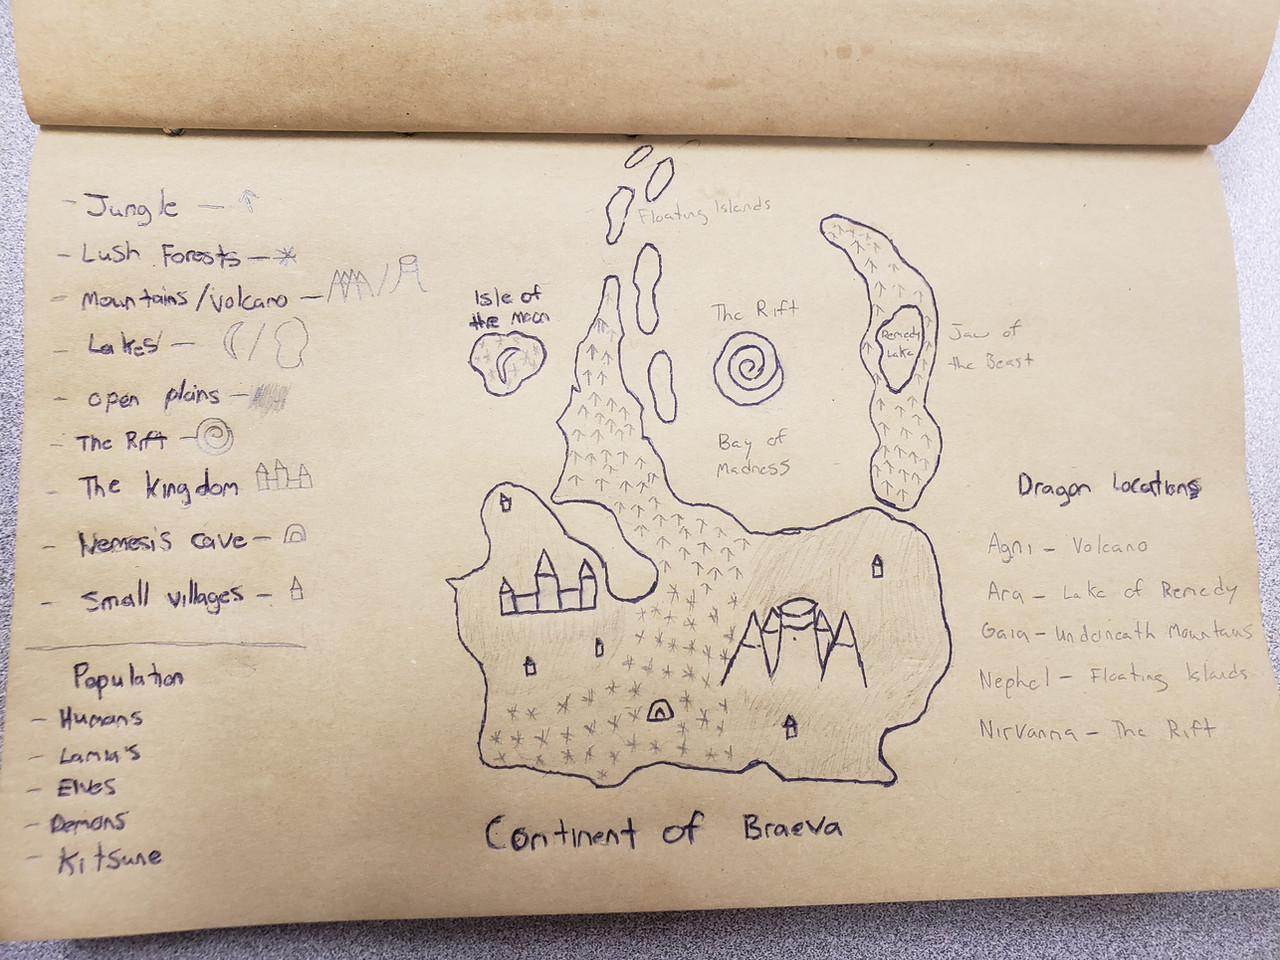 - Jungle -
- Lush Forests -
- Mountains/volcano -
- Lakes -
- open plains -
- The Rift -
- The Kingdom
- Nemesis cave -
- Small villages -
Population
- Humans
- Lamia's
- Elves
- Demons
- Kitsune
Floating Islands
Isle of
the moon
The Rift
Remedy
Lake
Jaw of
the Beast
Bay of
Madness
Continent of Braeva
Dragon Locations
Agni - Volcano
Ara - Lake of Remedy
Gaia - Underneath Mountains
Nephel - Floating Islands
Nirvanna - The Rift